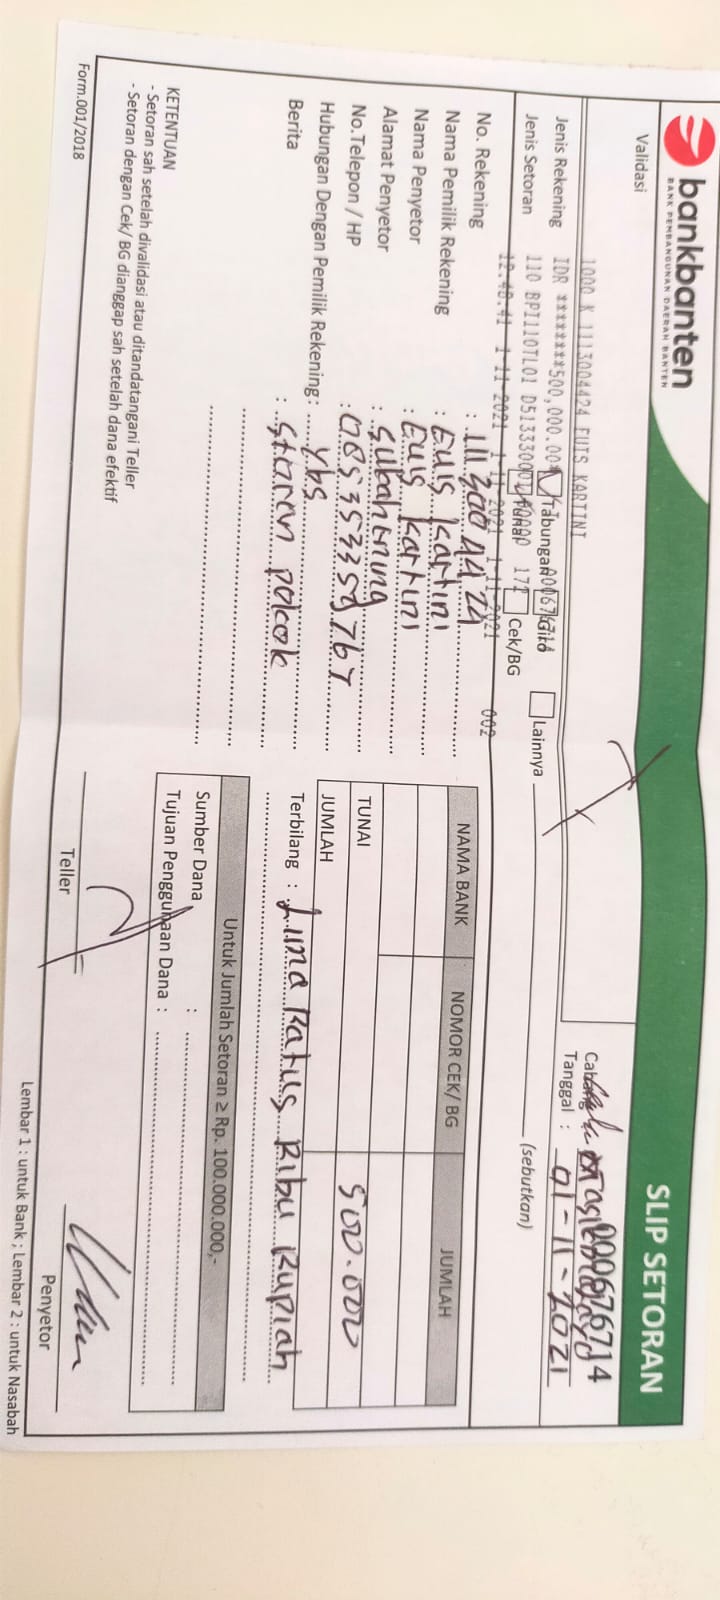 bankbanten
BANK PEMBANGUNAN DAERAH BANTEN
SLIP SETORAN
Validasi
1000 K 1113004424 EUIS KARTINI
000676714
IDR *********500,000.00
00067671
110 BPI110TL01 D5133300
172
12.40.41 1-11-2021 1-11-2021 1-11-2021 002
Tanggal : 01-11-2021
Jenis Rekening Tabungan Giro Lainnya (sebutkan)
Jenis Setoran Tunai Cek/BG
No. Rekening : 1113004424
Nama Pemilik Rekening : Euis Kartini
Nama Penyetor : Euis Kartini
Alamat Penyetor :
No.Telepon / HP :
Hubungan Dengan Pemilik Rekening : Ybs
Berita : Storan pokok
NAMA BANK NOMOR CEK/ BG JUMLAH
TUNAI 500.000
JUMLAH
Terbilang : Lima Ratus Ribu Rupiah
Untuk Jumlah Setoran ≥ Rp. 100.000.000,-
Sumber Dana :
Tujuan Penggunaan Dana :
KETENTUAN
- Setoran sah setelah divalidasi atau ditandatangani Teller
- Setoran dengan Cek/ BG dianggap sah setelah dana efektif
Teller
Penyetor
Form.001/2018
Lembar 1 : untuk Bank ; Lembar 2 : untuk Nasabah